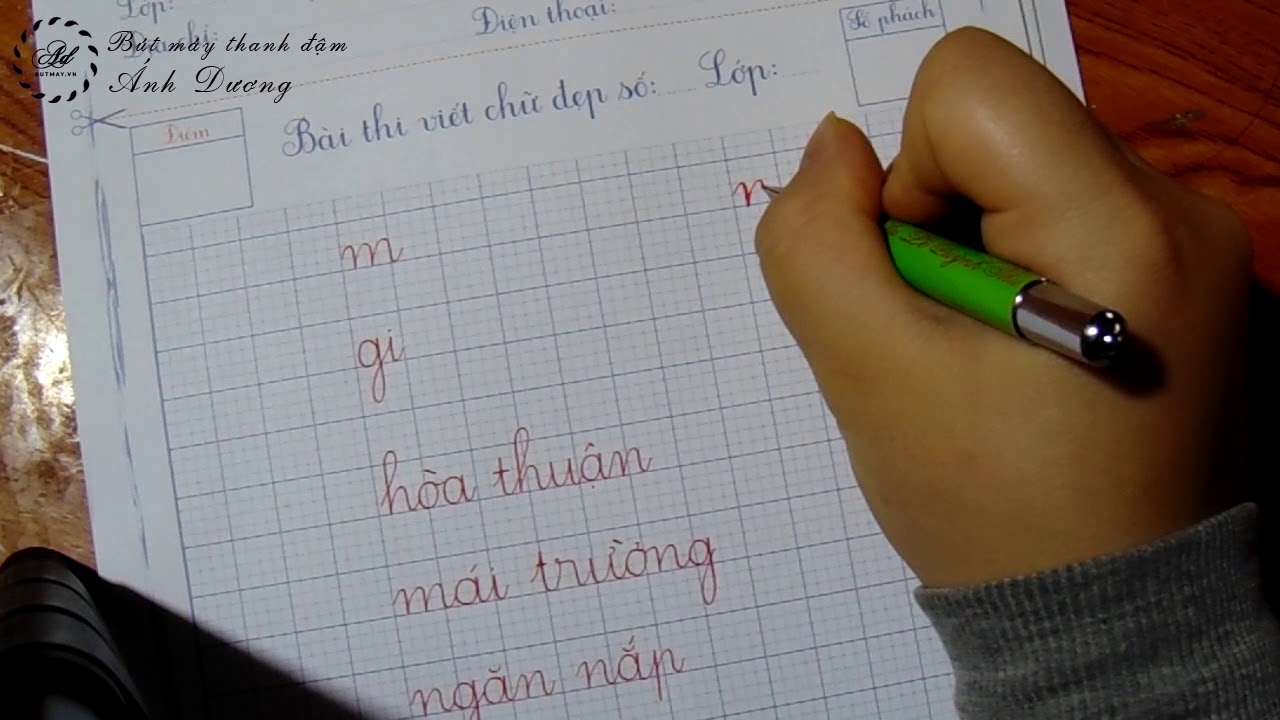 Lớp:
Điện thoại:
Địa chỉ:
Số phách
Ad
BUTMAY.VN
Bút máy thanh đậm
Ánh Dương
Điểm
Bài thi viết chữ đẹp số:..... Lớp:.....
m
gi
hòa thuận
mái trường
ngăn nắp